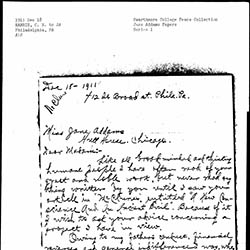 1911 Dec 18
HARRIS, C. N. to JA
Philadelphia, PA
ALS
Swarthmore College Peace Collection
Jane Addams Papers
Series 1
Dec 18 - 1911
712 So Broad st. Phila. Pa.
McClure
Miss Jane Addams
Hull House, Chicago.
Dear Madam:-
Like all broad minded and thinking
human people I have often read of your
great and noble work, but never read any
thing written by you until I saw your
article in McClures, entitled "A New Con-
science And An Ancient Evil". Because of it
I wish to ask your advice concerning a
project I have in view.
Owing to my father's